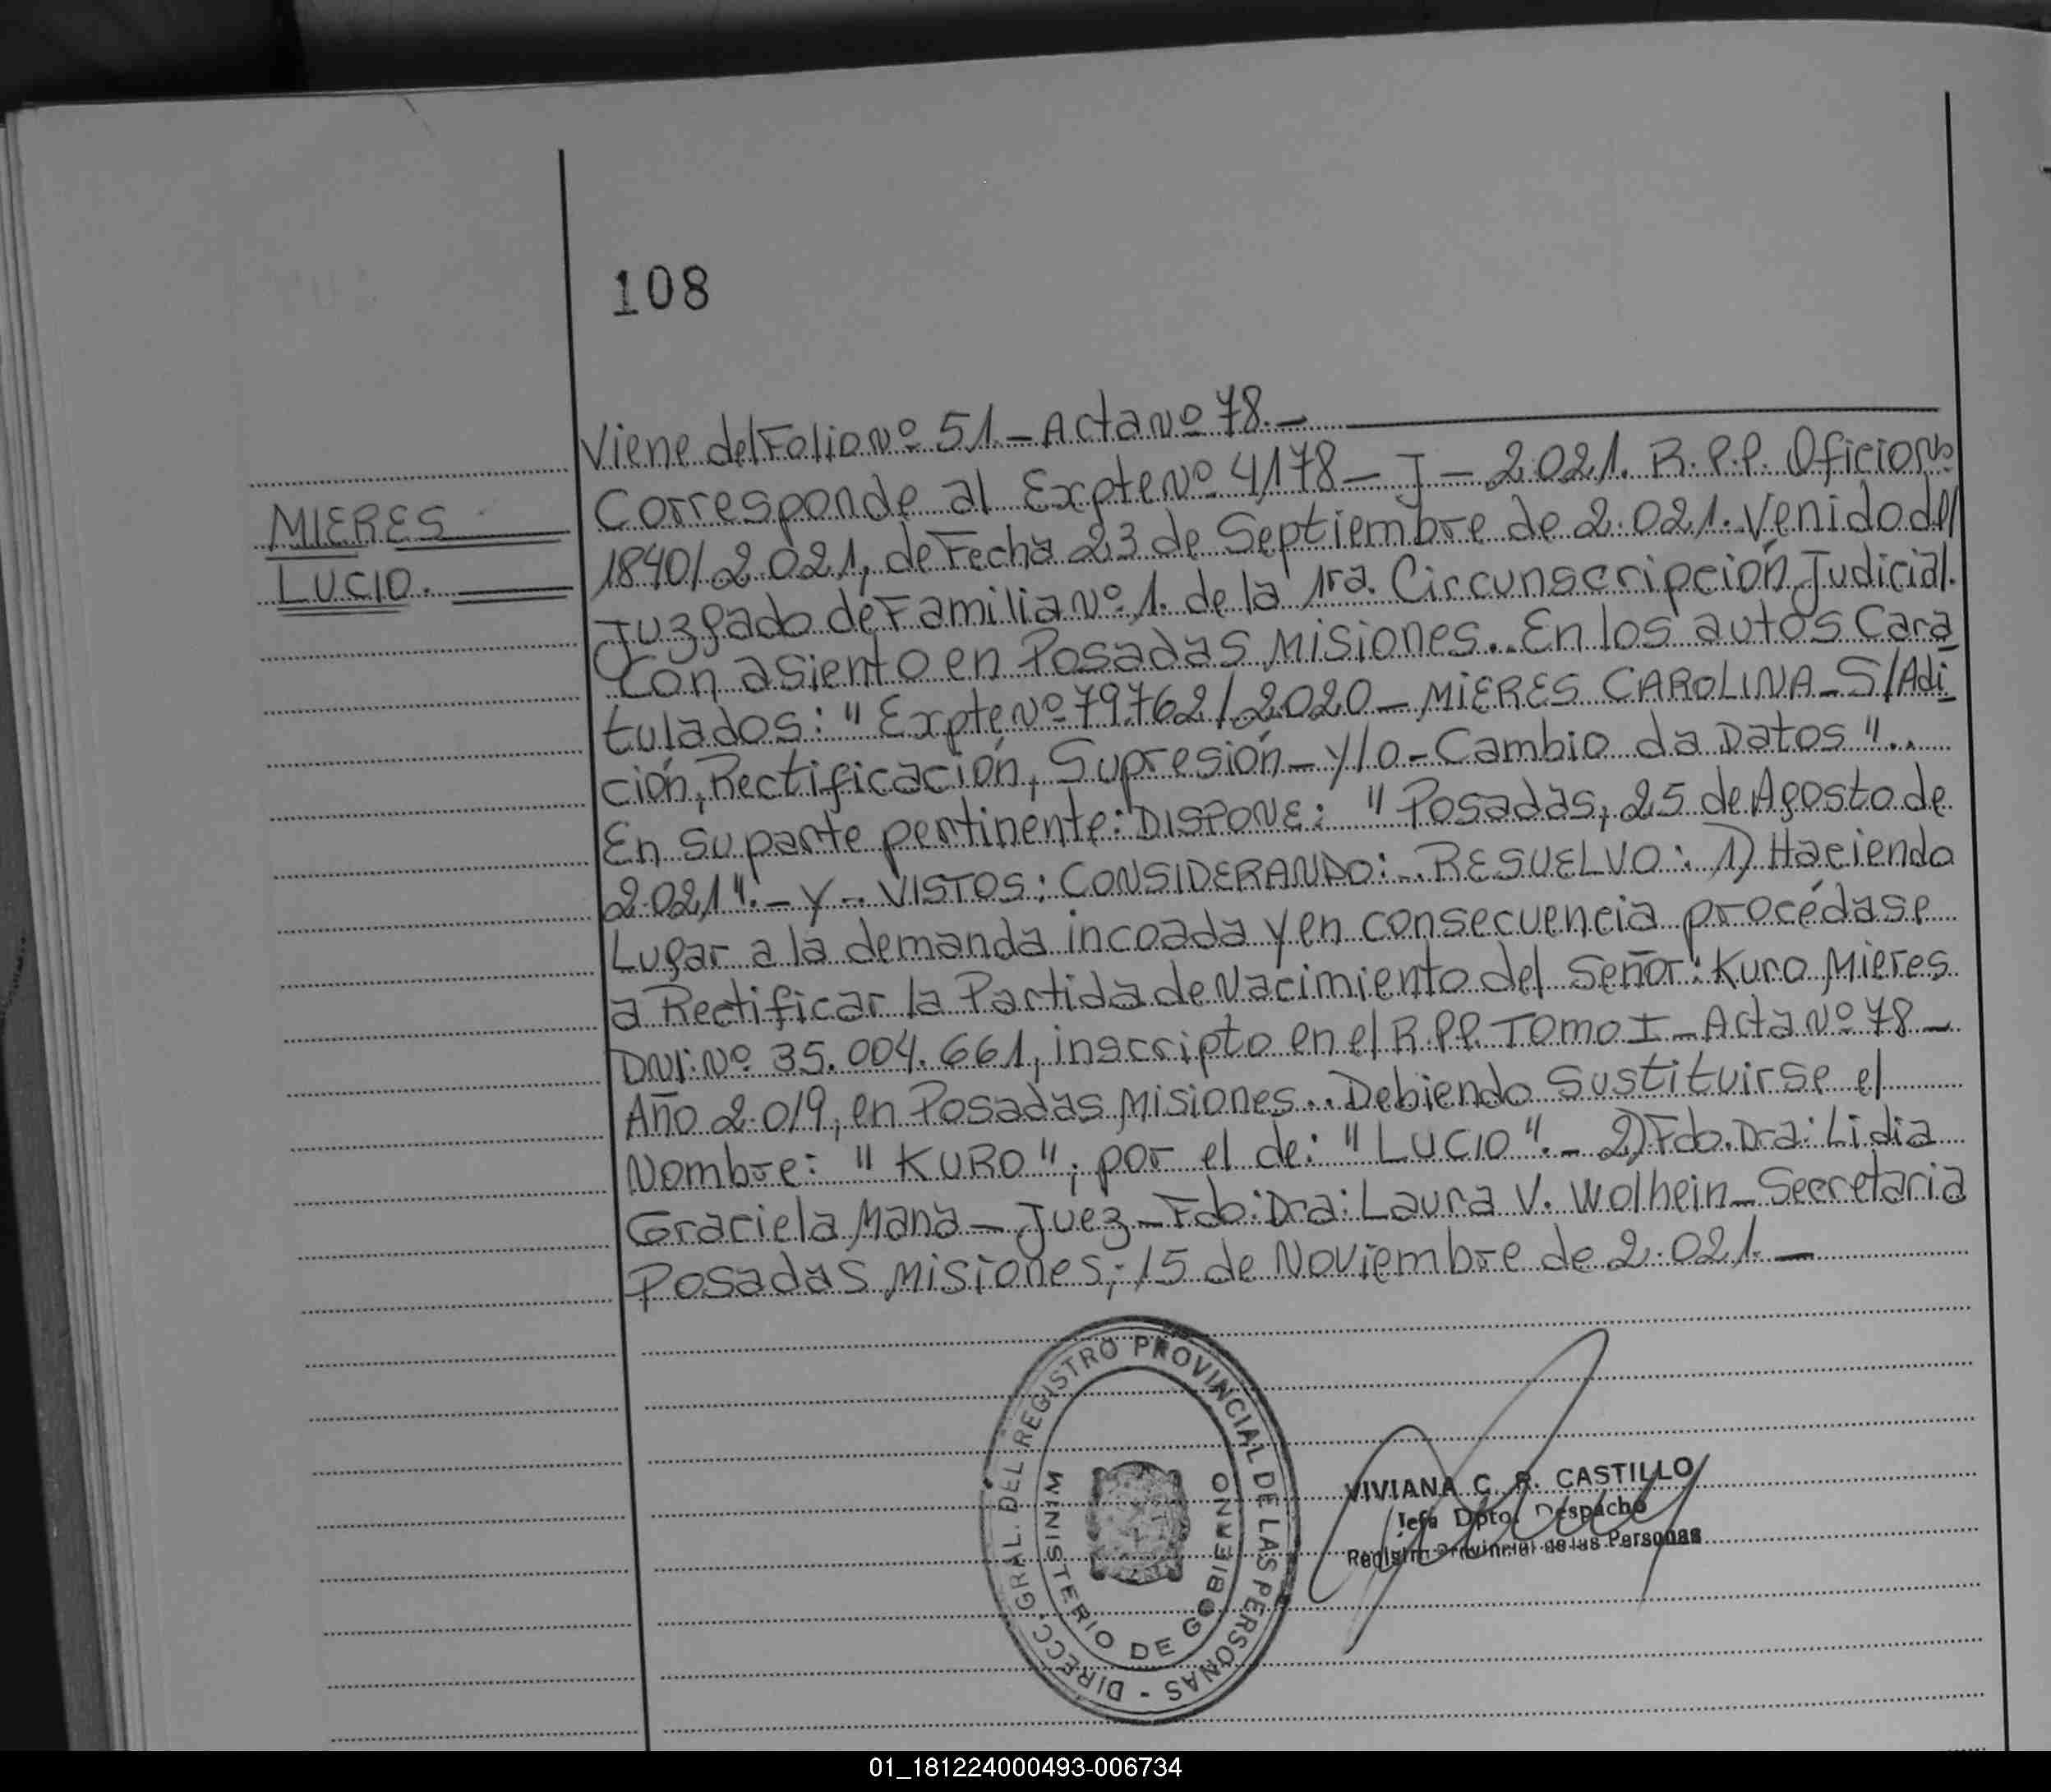 108
Viene del Folio Nº 51.- Acta Nº 78.-
MIERES
LUCIO.
Corresponde al Expte Nº 4178 - J - 2.021. R.P.P. Oficio Nº
1840/2.021, de Fecha 23 de Septiembre de 2.021. Venido del
Juzgado de Familia Nº 1. de la 1ra. Circunscripción Judicial.
Con asiento en Posadas Misiones.. En los autos Cara
tulados: " Expte Nº 79762/2020 - MIERES CAROLINA - S/Adi
ción, Rectificación, Supresión - y/o - Cambio da Datos "..
En su parte pertinente: DISPONE: " Posadas, 25 de Agosto de
2.021".- Y.- VISTOS: CONSIDERANDO:.. RESUELVO: 1) Haciendo
Lugar a la demanda incoada y en consecuencia procédase
a Rectificar la Partida de Nacimiento del Señor: Kuro Mieres
DNI: Nº 35.004.661, inscripto en el R.P.P. Tomo I - Acta Nº 78 -
Año 2.019, en Posadas Misiones.. Debiendo Sustituirse el
Nombre: " KURO ", por el de: " LUCIO ".- 2) Fdo. Dra: Lidia
Graciela Mana - Juez - Fdo: Dra: Laura V. Wolhein - Secretaria
Posadas Misiones, 15 de Noviembre de 2.021.-
DIRECC. GRAL. DEL REGISTRO PROVINCIAL DE LAS PERSONAS -
MINISTERIO DE GOBIERNO
VIVIANA C. R. CASTILLO
Jefa Dpto. Despacho
Registro Provincial de las Personas
01_181224000493-006734